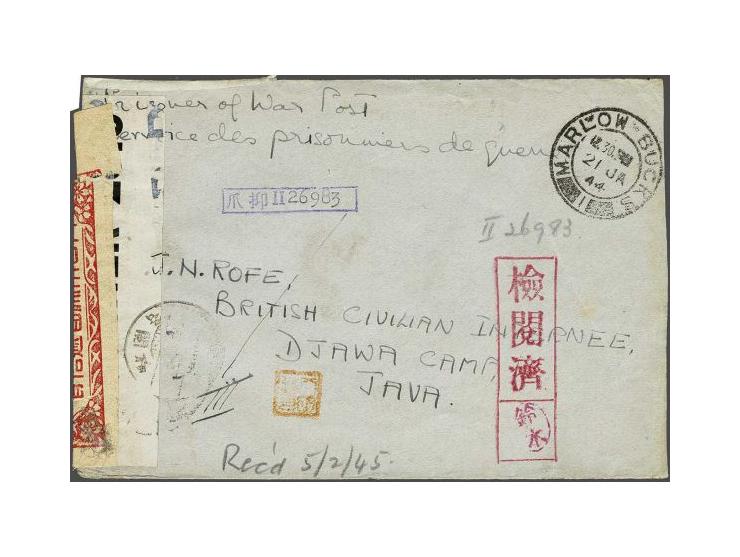 Prisoner of War Post
Service des prisonniers de guerre
MARLOW · BUCKS
12.30
21 JA
44
爪抑II26983
II 26983
J.N. ROFE,
BRITISH CIVILIAN INTERNEE,
DJAWA CAMP,
JAVA.
檢閲濟
鈴木
Rec'd 5/2/45.